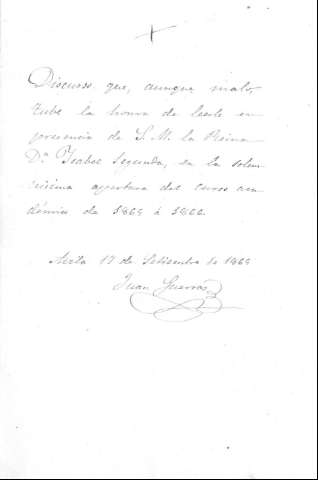 +
Discurso que, aunque malo,
tube la honra de leerle en
presencia de S. M. la Reina
Dª Isabel Segunda, en la solem
nisima apertura del curso aca
démico de 1865 á 1866.
17 de Setiembre de 1865
Juan Guerra